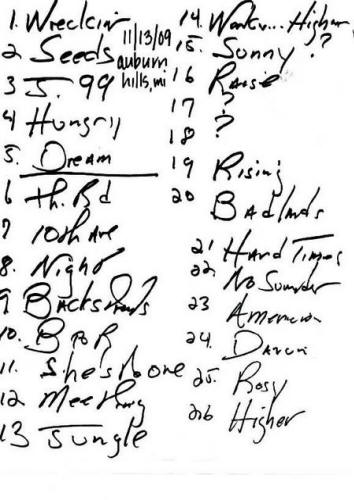 1. Wreckin'
2 Seeds
3 J. 99
4 Hungry
5. Dream
6 Th. Rd
7 10th Ave
8. Night
9 Backstreets
10. B to R
11. She's t One
12 Meeting
13 Jungle
11/13/09
auburn
hills, mi
14. Workn... Higher
15. Sunny?
16 Raise
17 ?
18 ?
19 Rising
20 Badlands
21 Hard Times
22. No Surrender
23 American
24. Dancin
25. Rosy
26 Higher